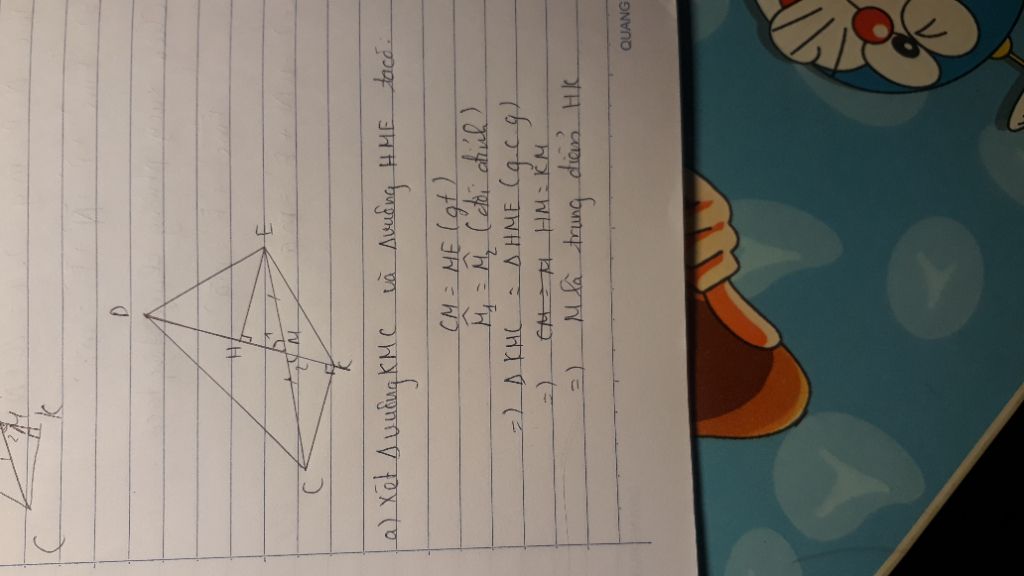 C
M
K
D
H
E
1
2
M
C
K
a) Xét Δ vuông KMC và Δ vuông HME ta có:
CM = ME (gt)
M̂1 = M̂2 (đối đỉnh)
=) Δ KMC = Δ HME (g c g)
=) CM = M HM = KM
=) M là trung điểm HK
QUANG